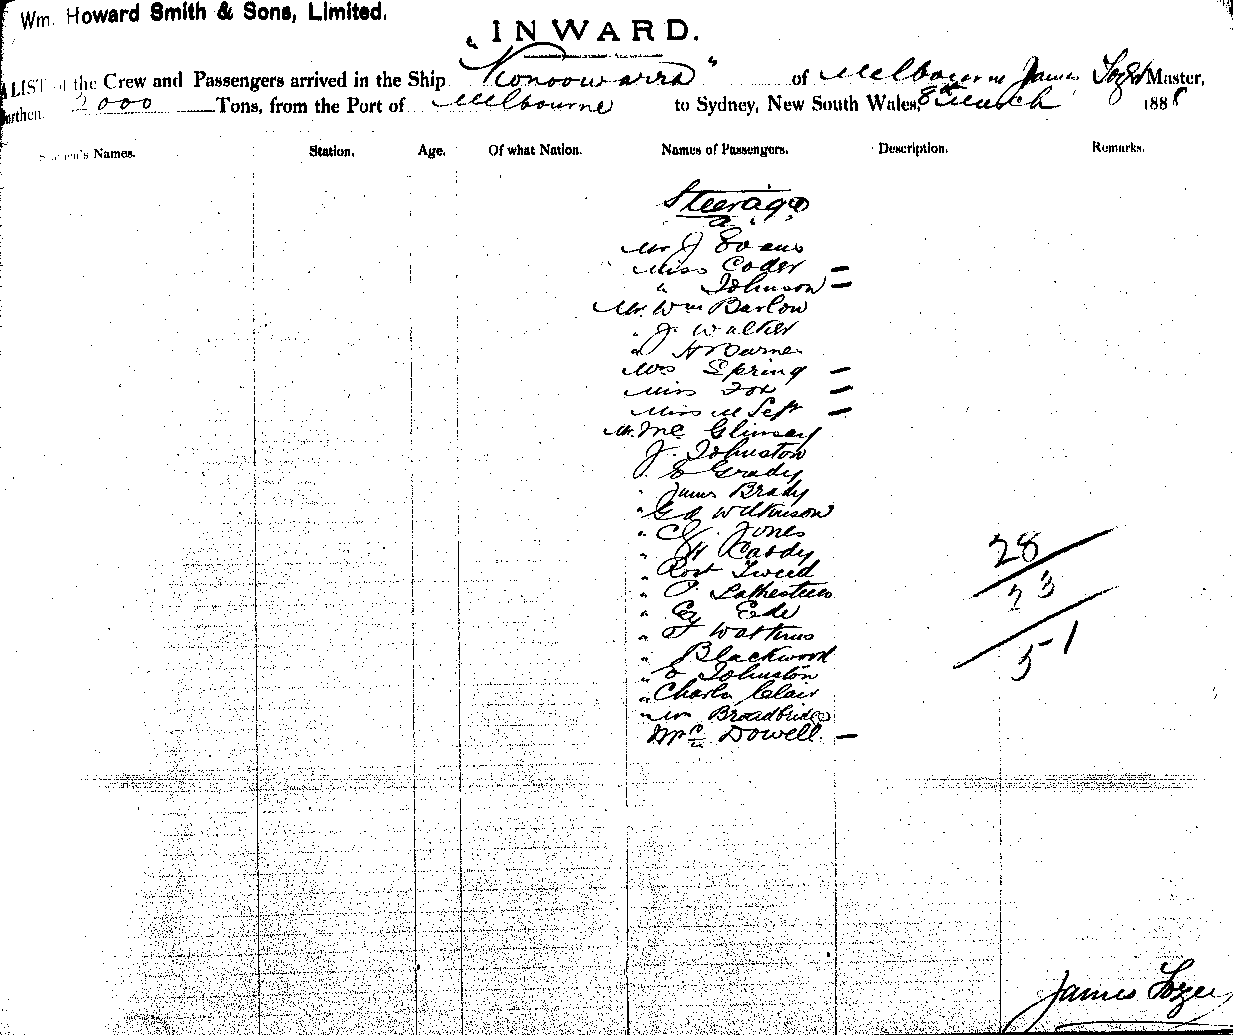 Wm. Howard Smith & Sons, Limited.
INWARD.
A LIST of the Crew and Passengers arrived in the Ship "Konoowarra" of Melbourne James Tozer Master,
Burthen 2000 Tons, from the Port of Melbourne to Sydney, New South Wales, 8th March 1888
Seamen's Names. Station. Age. Of what Nation. Names of Passengers. Description. Remarks.
Steerage
Mr J Evans
Miss Coder –
" Johnson –
Mr. Wm Barlow
" J. Walker
" H Barnes
Mrs Spring –
Miss Fox –
Miss M –
Mr. Mc
J. Johnston
E Grady
" James Brady
" G A Wilkinson
" C J. Jones
" H Caddy
" Robt Tweed
" P.
" Ede
" Watkins
" Blackwood
" E Johnston
" Charles Clair
" Wm Broadbridge
Mrs Dowell –
28
23
51
James Tozer